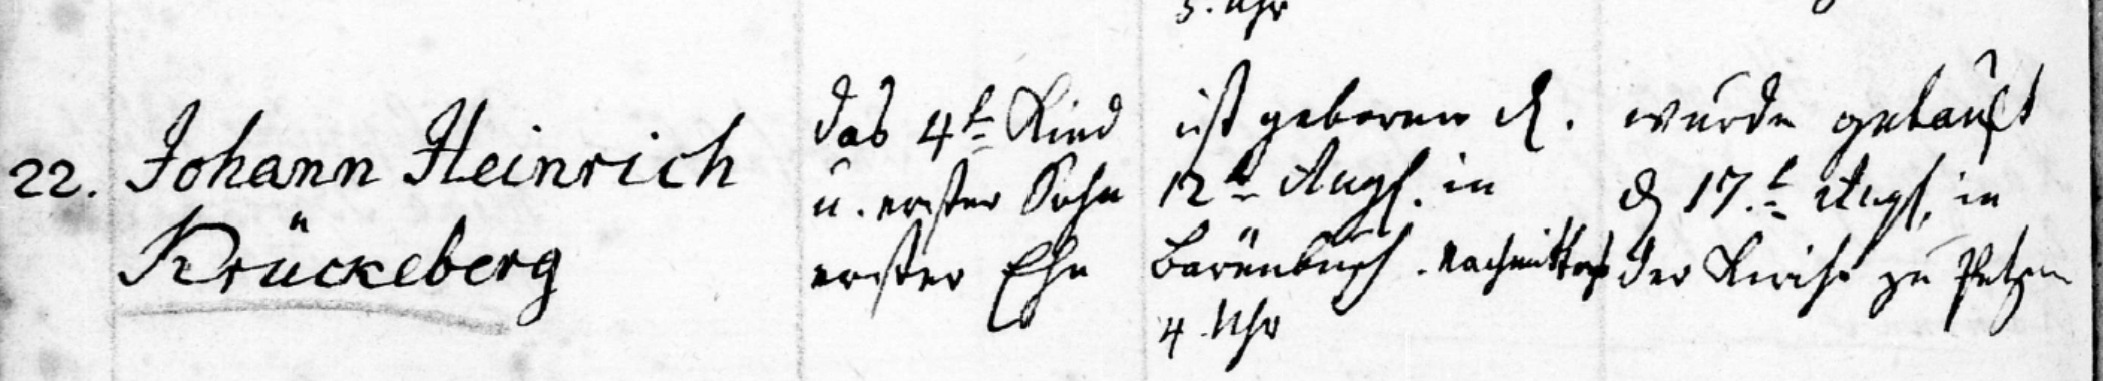 5. Uhr
22. Johann Heinrich
Krückeberg
das 4te Kind
u. erster Sohn
erster Ehe
ist geboren d.
12te Augst. in
Bärenbusch. Nachmittags
4 Uhr
wurde getauft
d. 17.te Augst. in
der Kirche zu Petzen